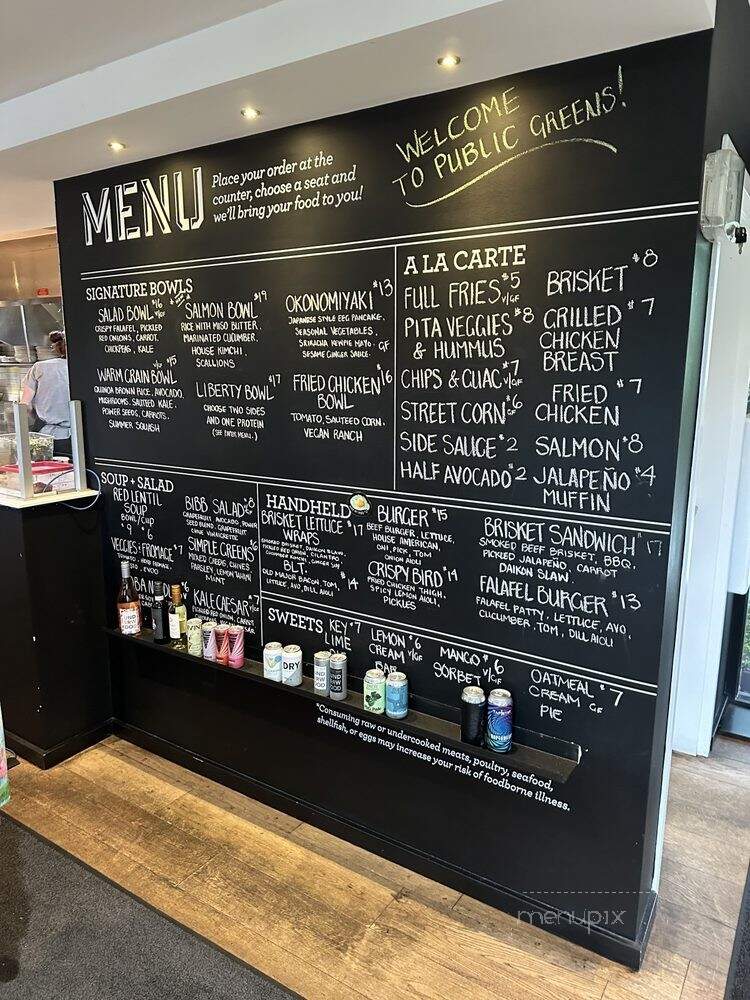 WELCOME
TO PUBLIC GREENS!
MENU
Place your order at the
counter, choose a seat and
we'll bring your food to you!
SIGNATURE BOWLS
SALAD BOWL $16 V/GF
CRISPY FALAFEL, PICKLED
RED ONIONS, CARROT,
CHICKPEAS, KALE
SALMON BOWL $19
RICE WITH MISO BUTTER,
MARINATED CUCUMBER,
HOUSE KIMCHI,
SCALLIONS
OKONOMIYAKI $13
JAPANESE STYLE EGG PANCAKE,
SEASONAL VEGETABLES,
SRIRACHA KEWPIE MAYO, GF
SESAME GINGER SAUCE.
WARM GRAIN BOWL $15
QUINOA BROWN RICE, AVOCADO,
MUSHROOMS, SAUTEED KALE,
POWER SEEDS, CARROTS,
SUMMER SQUASH
LIBERTY BOWL $17
CHOOSE TWO SIDES
AND ONE PROTEIN
(SEE PRINT MENU.)
FRIED CHICKEN $16
BOWL
TOMATO, SAUTEED CORN,
VEGAN RANCH
A LA CARTE
FULL FRIES $5 V/GF
PITA VEGGIES $8
& HUMMUS
CHIPS & GUAC $7 V/GF
STREET CORN $6 GF
SIDE SAUCE $2
HALF AVOCADO $2
BRISKET $8
GRILLED $7
CHICKEN
BREAST
FRIED $7
CHICKEN
SALMON $8
JALAPEÑO $4
MUFFIN
SOUP + SALAD
RED LENTIL
SOUP
BOWL/CUP
9 6
VEGGIES + FROMAGE $7
BIBB SALAD $8
GRAPEFRUIT, AVOCADO, POWER
SEED BLEND, GRAPEFRUIT
CHIVE VINAIGRETTE
SIMPLE GREENS $6
MIXED GREENS, CHIVES
PARSLEY, LEMON TAHINI
MINT
KALE CAESAR $7
PICKLED RED ONION, CARROT
HANDHELD
BRISKET LETTUCE $17
WRAPS
SMOKED BRISKET, DAIKON SLAW,
PICKLED RED ONION, CILANTRO
CUCUMBER KIMCHI, GINGER SOY
BLT. $14
OLD MAJOR BACON, TOM,
LETTUCE, AVO, DILL AIOLI
BURGER $15
BEEF BURGER, LETTUCE,
HOUSE AMERICAN,
ONI, PICK, TOM
ONION AIOLI
CRISPY BIRD $14
FRIED CHICKEN THIGH,
SPICY LEMON AIOLI,
PICKLES
BRISKET SANDWICH $17
SMOKED BEEF BRISKET, BBQ,
PICKLED JALAPEÑO, CARROT
DAIKON SLAW
FALAFEL BURGER $13
FALAFEL PATTY, LETTUCE, AVO,
CUCUMBER, TOM, DILL AIOLI
SWEETS
KEY $7
LIME
LEMON $6
CREAM V/GF
BAR
MANGO $6
SORBET V/GF
OATMEAL $7
CREAM GF
PIE
DRY
*Consuming raw or undercooked meats, poultry, seafood,
shellfish, or eggs may increase your risk of foodborne illness.
menupix